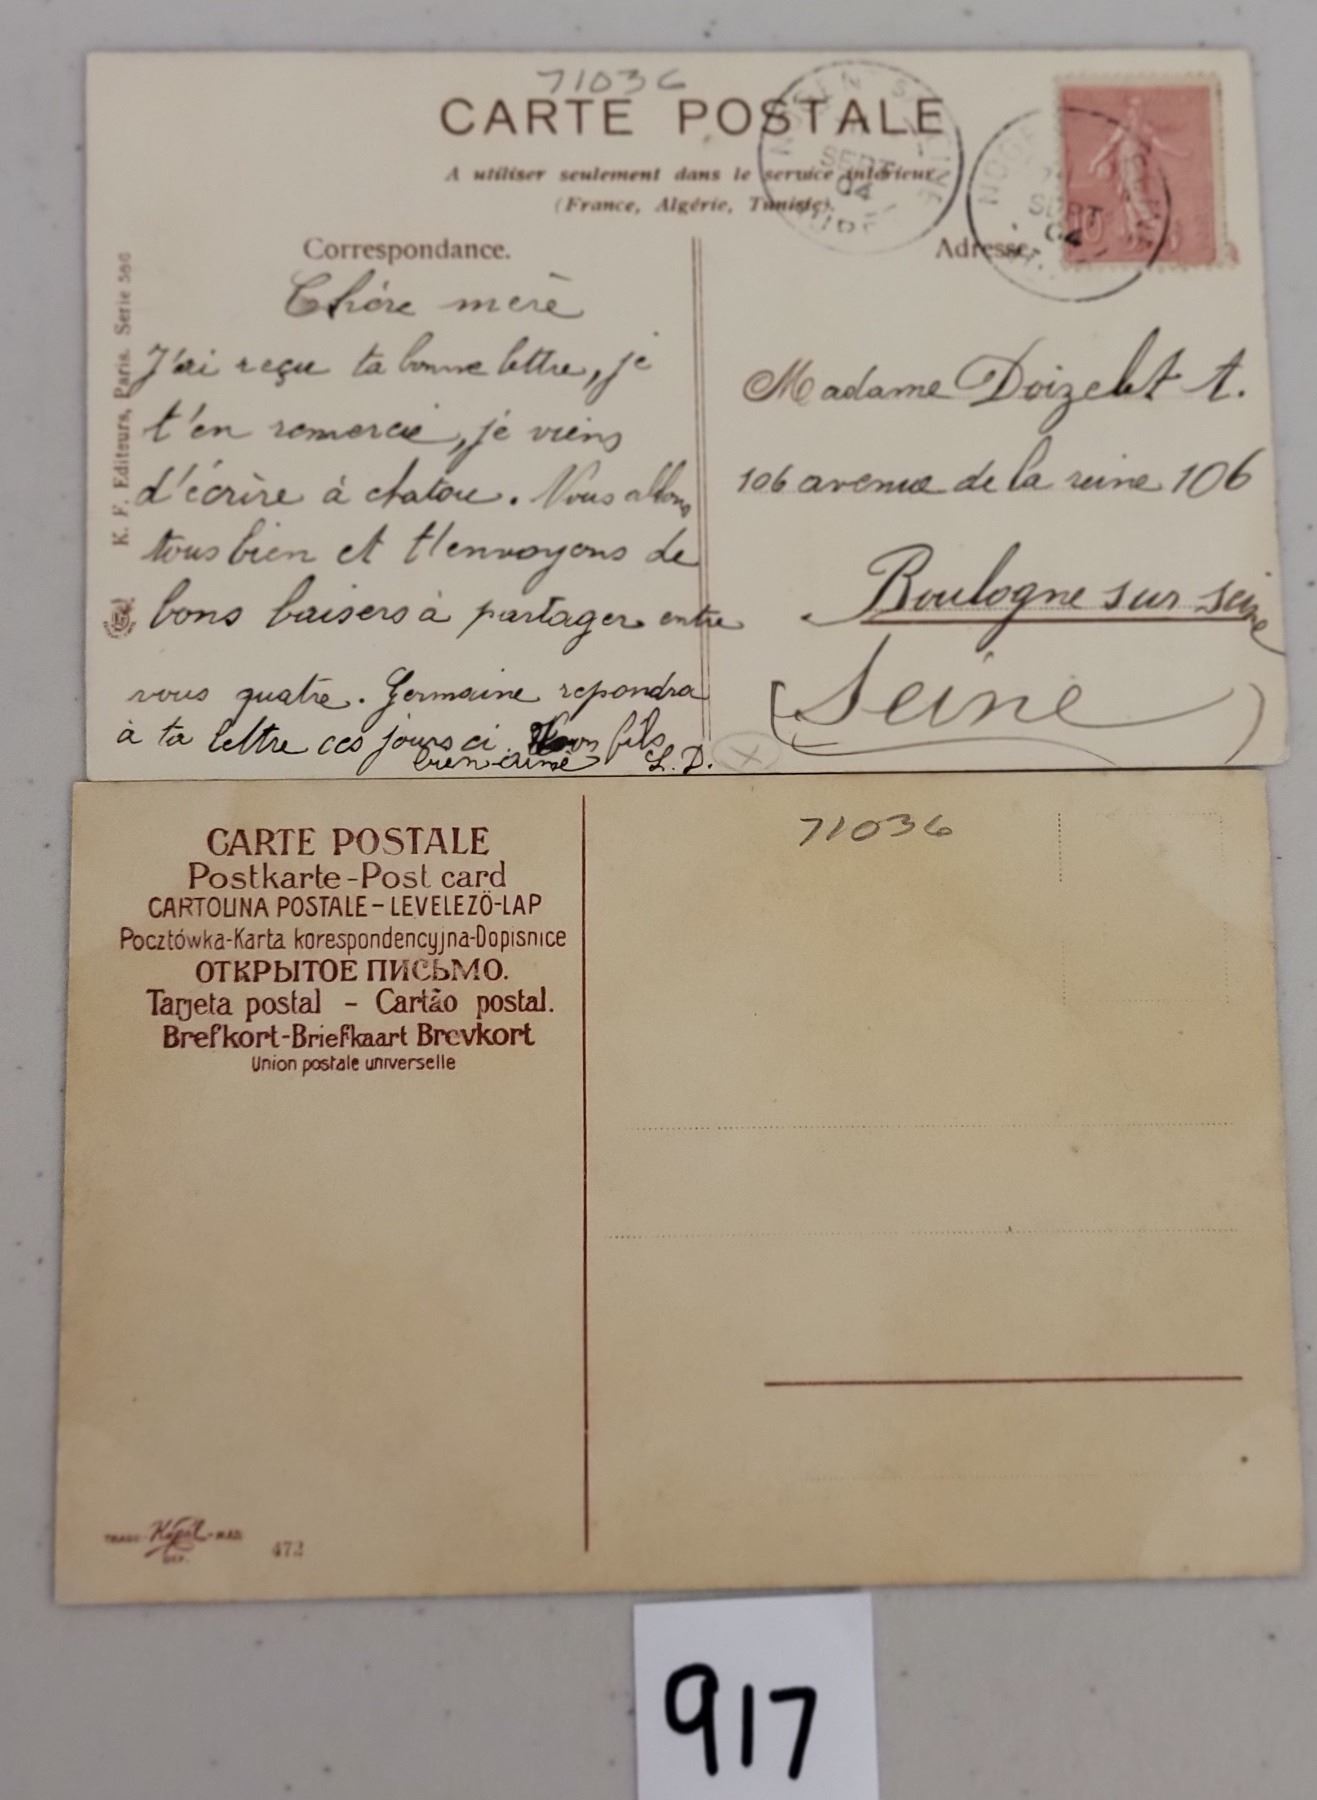 71036
CARTE POSTALE
A utiliser seulement dans le service intérieur
(France, Algérie, Tunisie).
Correspondance.
Adresse
SEPT
04
SEPT
04
10
K. F. Editeurs, Paris. Serie 586
Chére merè
J'ai reçu ta bonne lettre, je
t'en remercie, je viens
d'écrire à chatou. Nous allons
tous bien et t'envoyons de
bons baisers à partager entre
vous quatre. Germaine repondra
à ta lettre ces jours ci. fils
bien aimé L. D.
Madame Doizelet A.
106 avenue de la reine 106
Boulogne sur seine
(Seine)
71036
CARTE POSTALE
Postkarte-Post card
CARTOLINA POSTALE-LEVELEZÖ-LAP
Pocztówka-Karta korespondencyjna-Dopisnice
ОТКРЫТОЕ ПИСЬМО.
Tarjeta postal - Cartão postal.
Brefkort-Briefkaart Brevkort
Union postale universelle
472
917